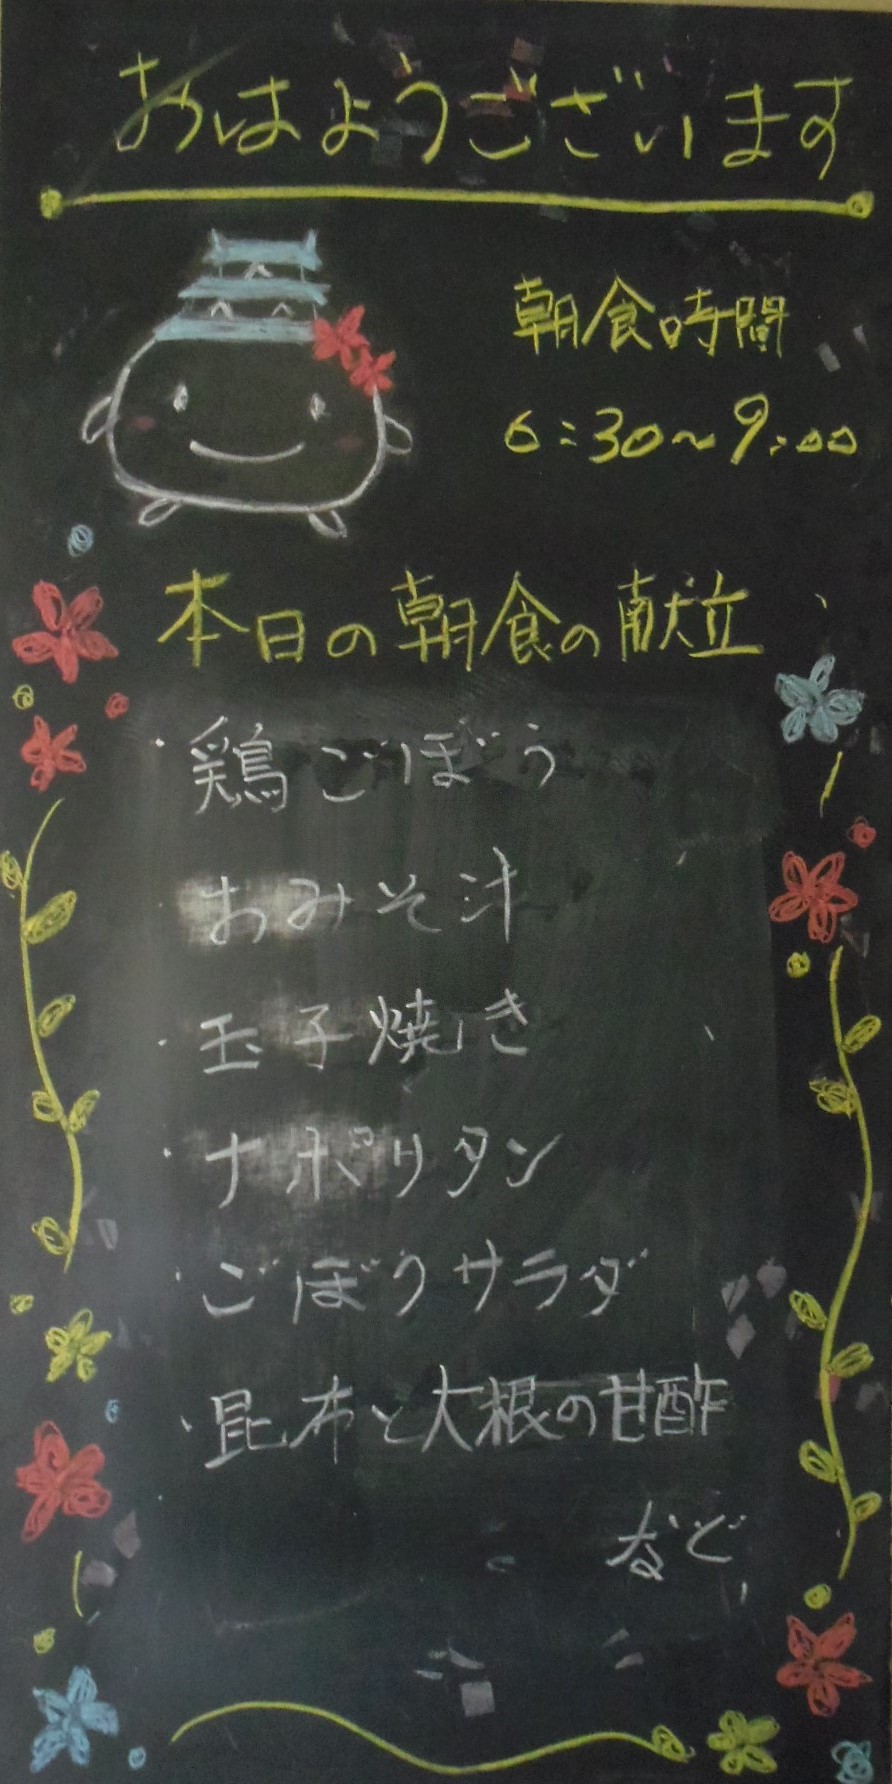 おはようございます
朝食時間
6:30~9:00
本日の朝食の献立
・鶏ごぼう
・おみそ汁
・玉子焼き
・ナポリタン
・ごぼうサラダ
・昆布と大根の甘酢
など